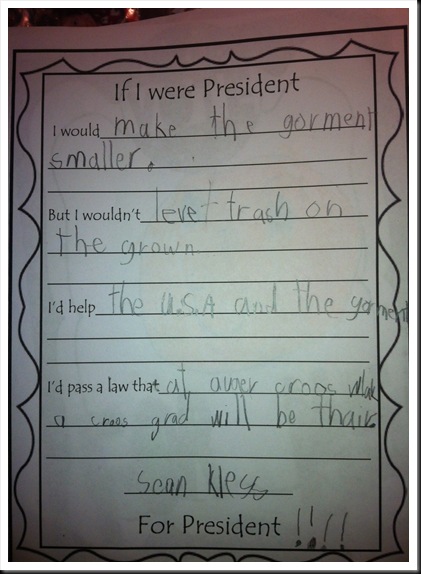 If I were President
I would make the gorment
smaller.
But I wouldn't levet trash on
the grown
I'd help the U.S.A and the gorment
I'd pass a law that at auver croos wlak
a croos grad will be thair.
Sean Kless
For President !!!!